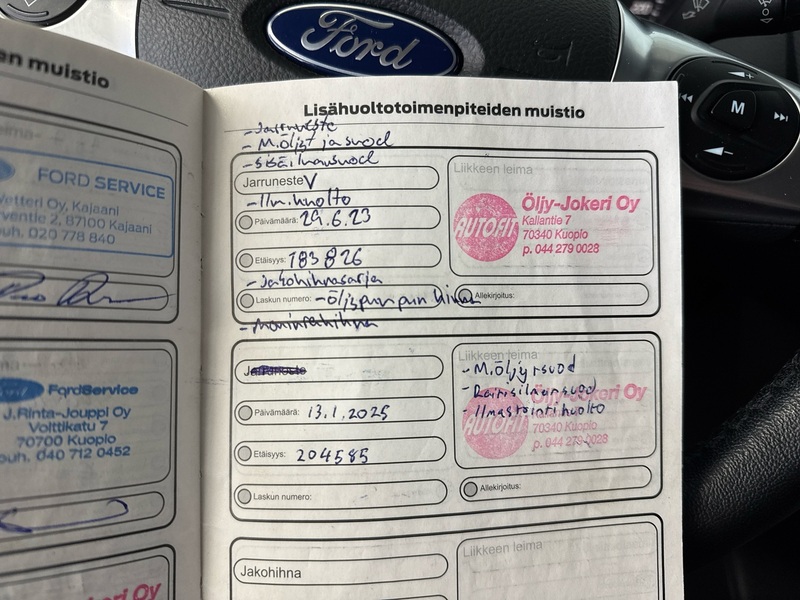 Ford
M
en muistio
FORD SERVICE
Vetteri Oy, Kajaani
ventie 2, 87100 Kajaani
puh. 020 778 840
FordService
J.Rinta-Jouppi Oy
Volttikatu 7
70700 Kuopio
puh. 040 712 0452
Oy
Lisähuoltotoimenpiteiden muistio
- Jarruneste
- M.öljyt ja suod
- Sisäilmansuod
Jarruneste V
- Ilm.huolto
Päivämäärä: 29.6.23
Etäisyys: 183826
- Jakohihnasarja
Laskun numero: - Öljypumpun hihna
- Moniurahihna
Liikkeen leima
AUTOFIT
Öljy-Jokeri Oy
Kallantie 7
70340 Kuopio
p. 044 279 0028
Allekirjoitus:
Jarruneste
Päivämäärä: 13.1.2025
Etäisyys: 204585
Laskun numero:
Liikkeen leima
- M.öljy+suod
- Raitisilmansuod
- Ilmastointihuolto
AUTOFIT
Öljy-Jokeri Oy
70340 Kuopio
p. 044 279 0028
Allekirjoitus:
Jakohihna
Liikkeen leima